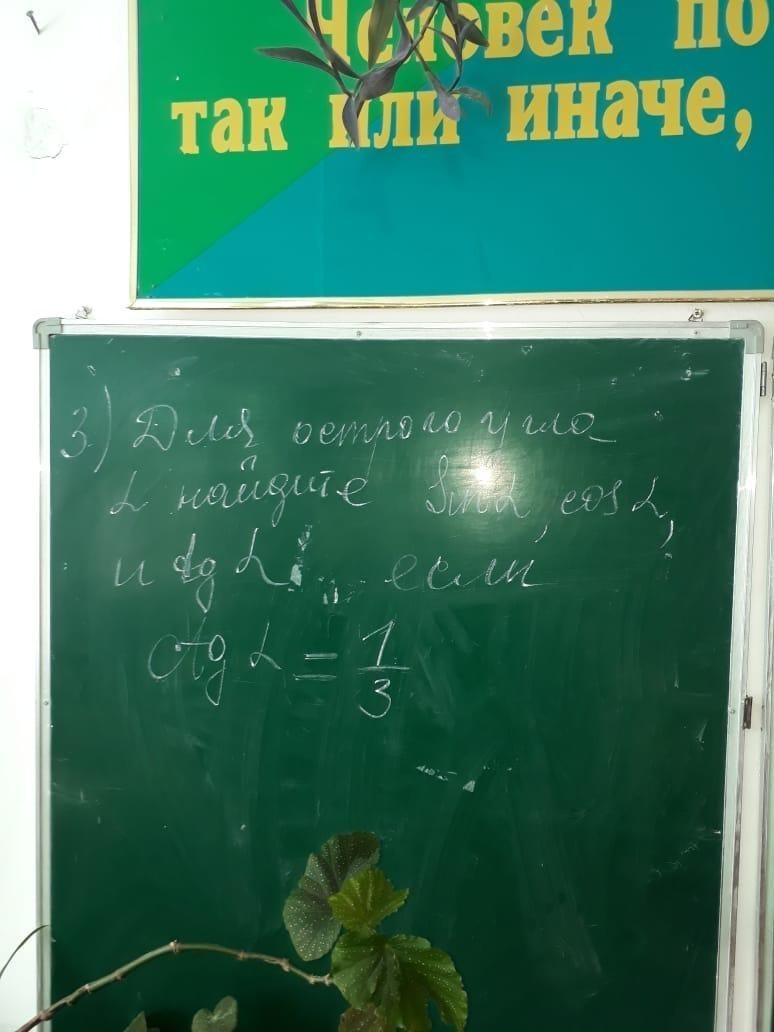 Человек по
так или иначе,
3) Для острого угла
α найдите Sinα, cosα,
и tg α, если
ctg α = 1/3